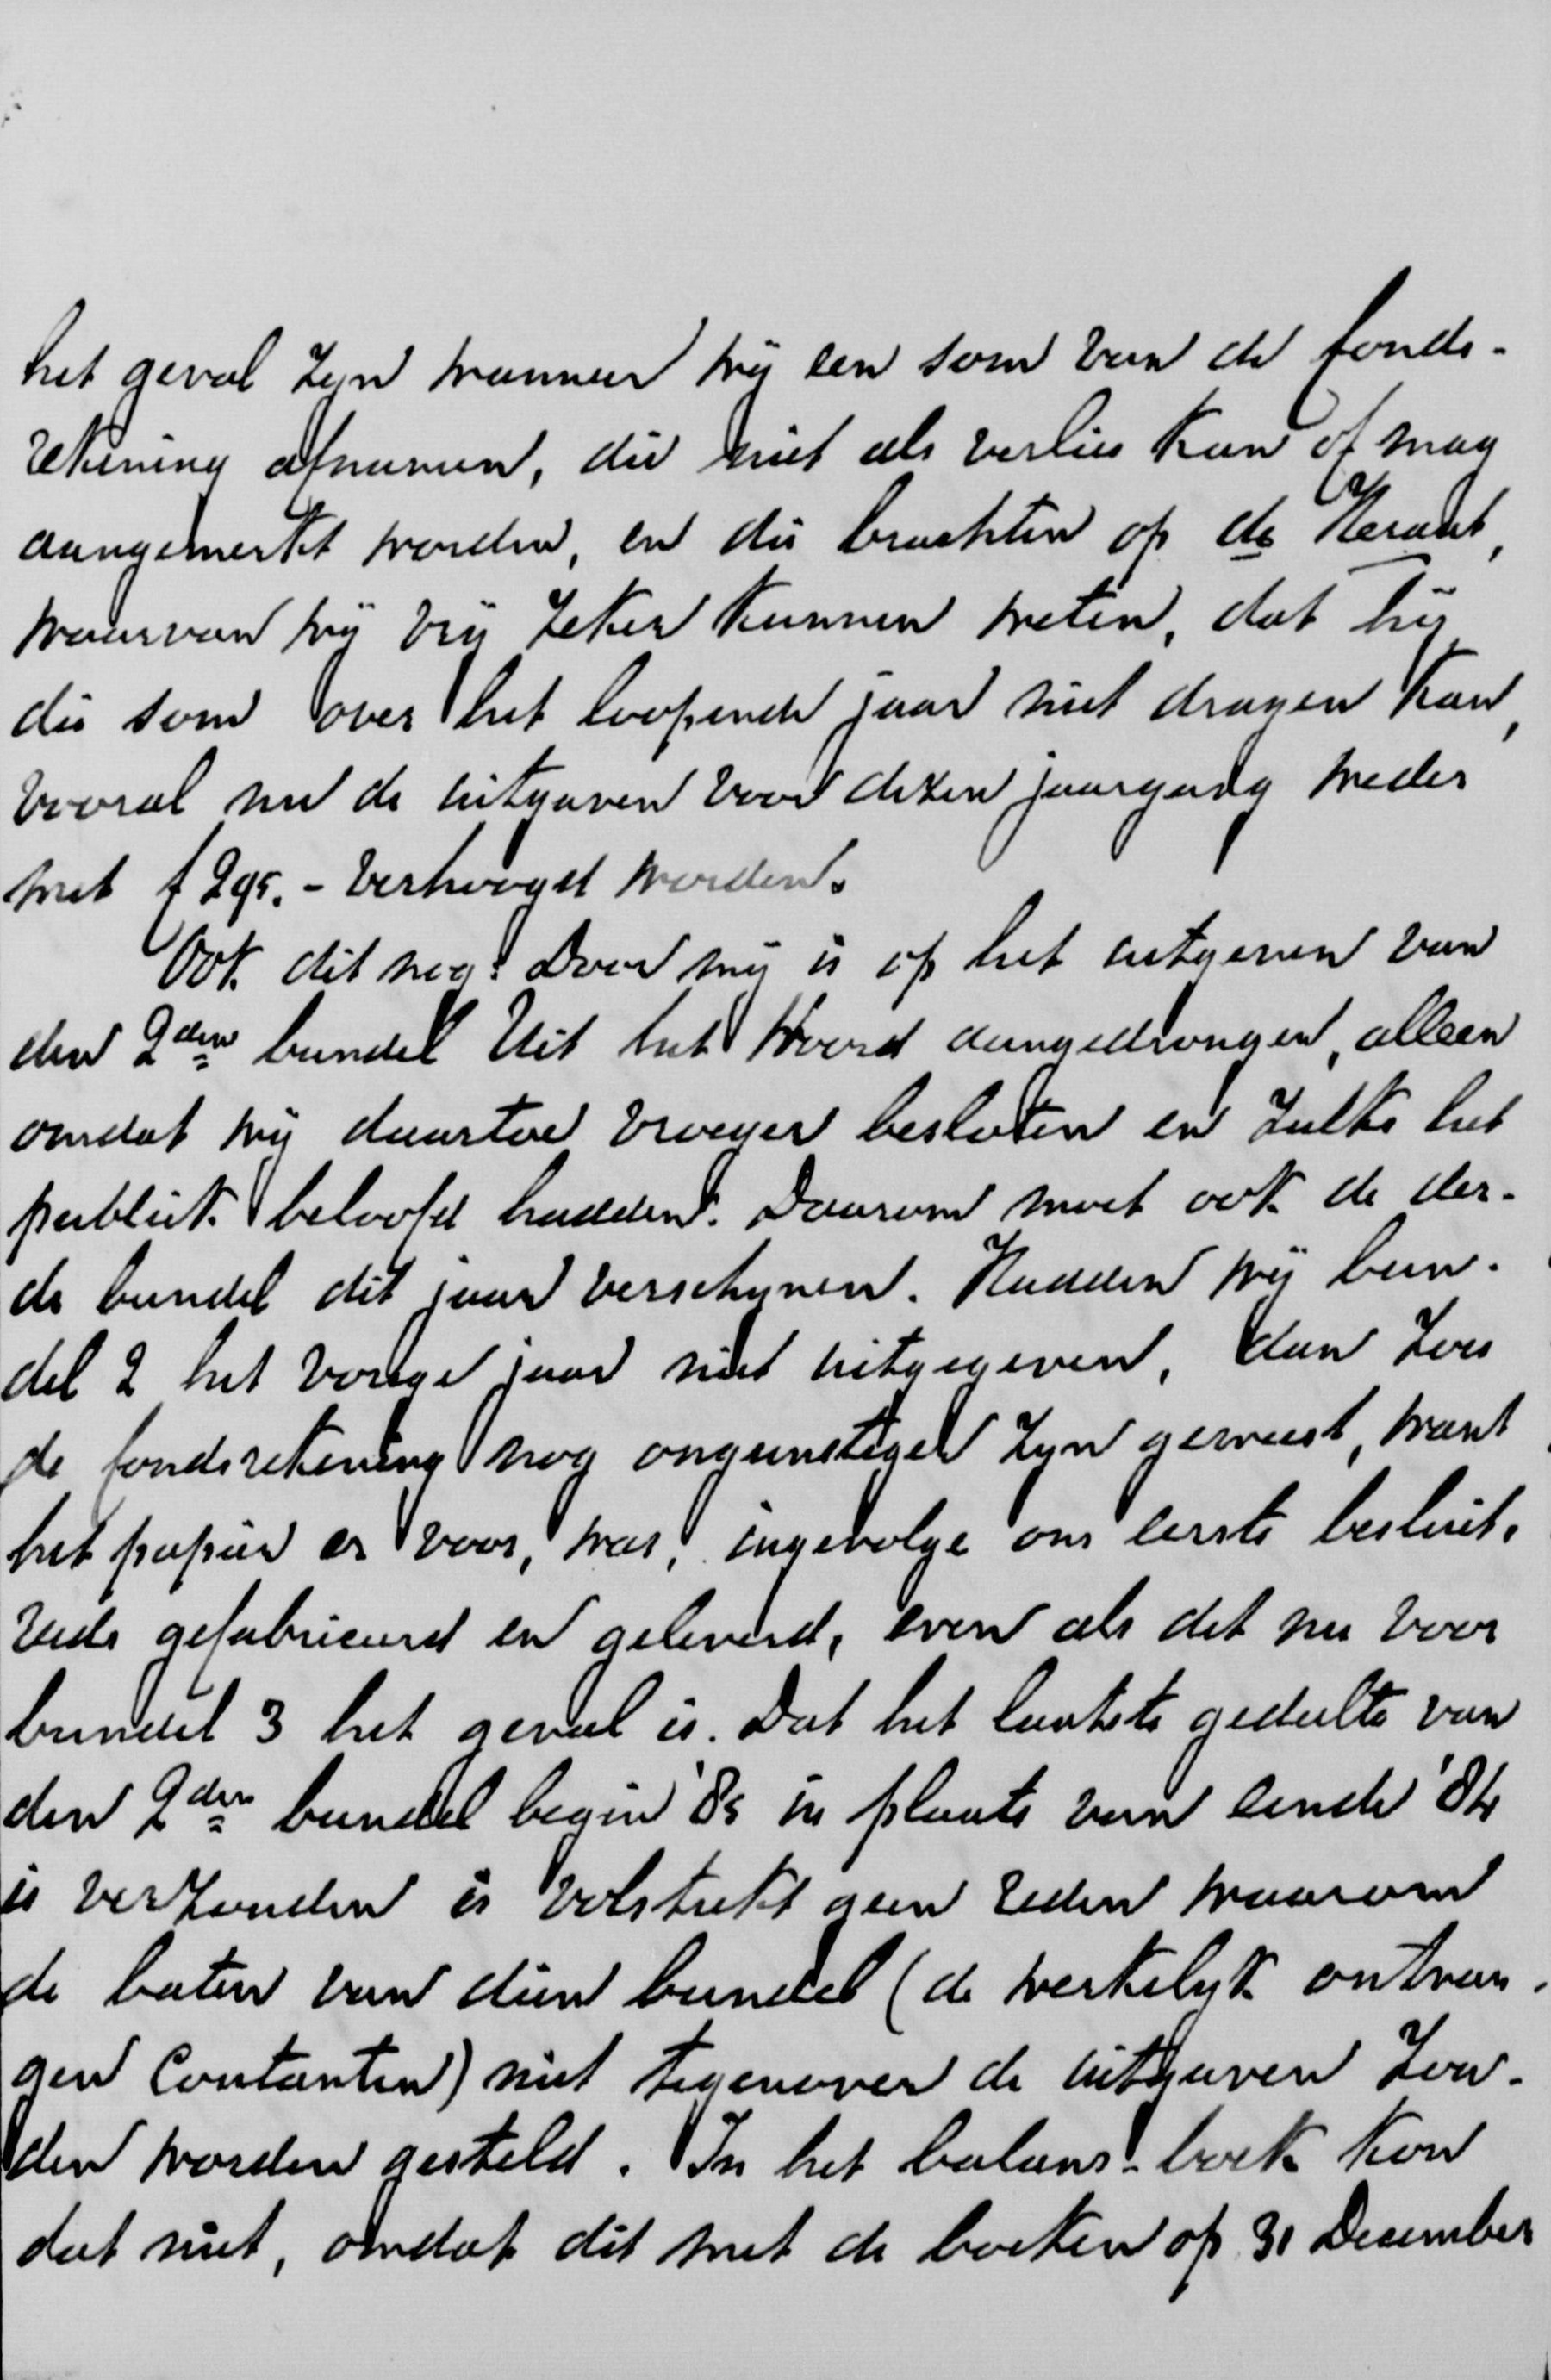 het geval zyn wanneer wij een som van de fonds-
rekening afnamen, die niet als verlies kan of mag
aangemerkt worden, en die brachten op de Kerant,
waarvan wij vrij zeker kunnen weten, dat hij
die som over het loopende jaar niet dragen kan,
vooral nu de uitgaven voor dezen jaargang weder
met f 295.- verhoogd worden.
Ook dit nog: Door mij is op het uitgeven van
den 2den bundel Uit het Woord aangedrongen, alleen
omdat wij daartoe vroeger besloten en zulks het
publiek beloofd hadden. Daarom moet ook de der-
de bundel dit jaar verschynen. Hadden wij bun-
del 2 het vorige jaar niet uitgegeven, dan zou
de fondsrekening nog ongunstiger zyn geweest, want
het papier er voor, was, ingevolge ons eerste besluit,
reeds gefabriceerd en geleverd, even als dit nu voor
bundel 3 het geval is. Dat het laatste gedeelte van
den 2den bundel begin '85 in plaats van einde '84
is verzonden is volstrekt geen reden waarom
de baten van dien bundel (de werkelyk ontvan-
gen Contanten) niet tegenover de uitgaven zou-
den worden gesteld. In het balans-boek kon
dat niet, omdat dit met de boeken op 31 December